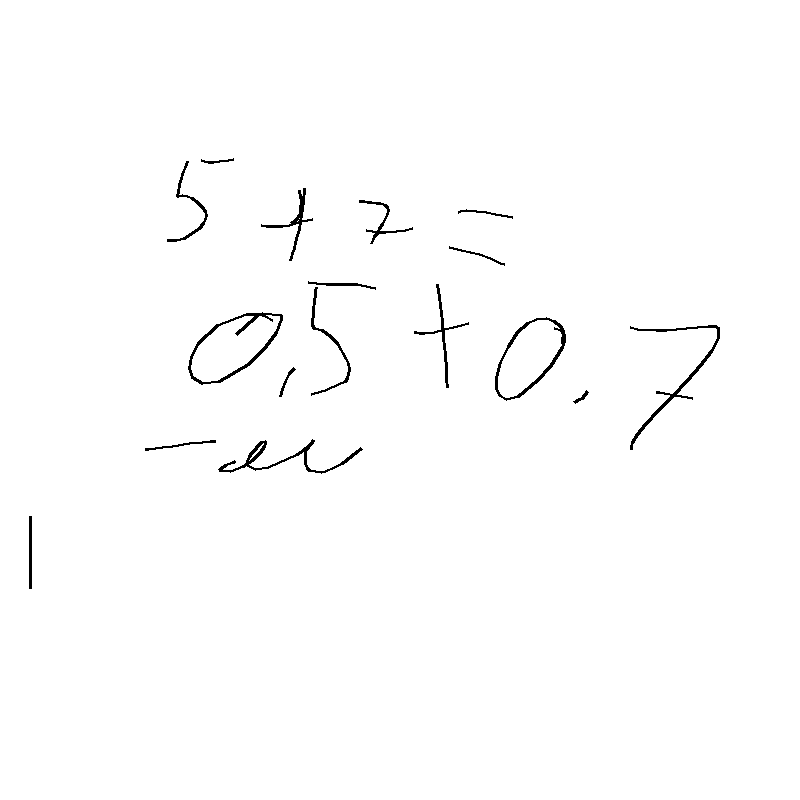 5 + 7 =
0,5 + 0.7